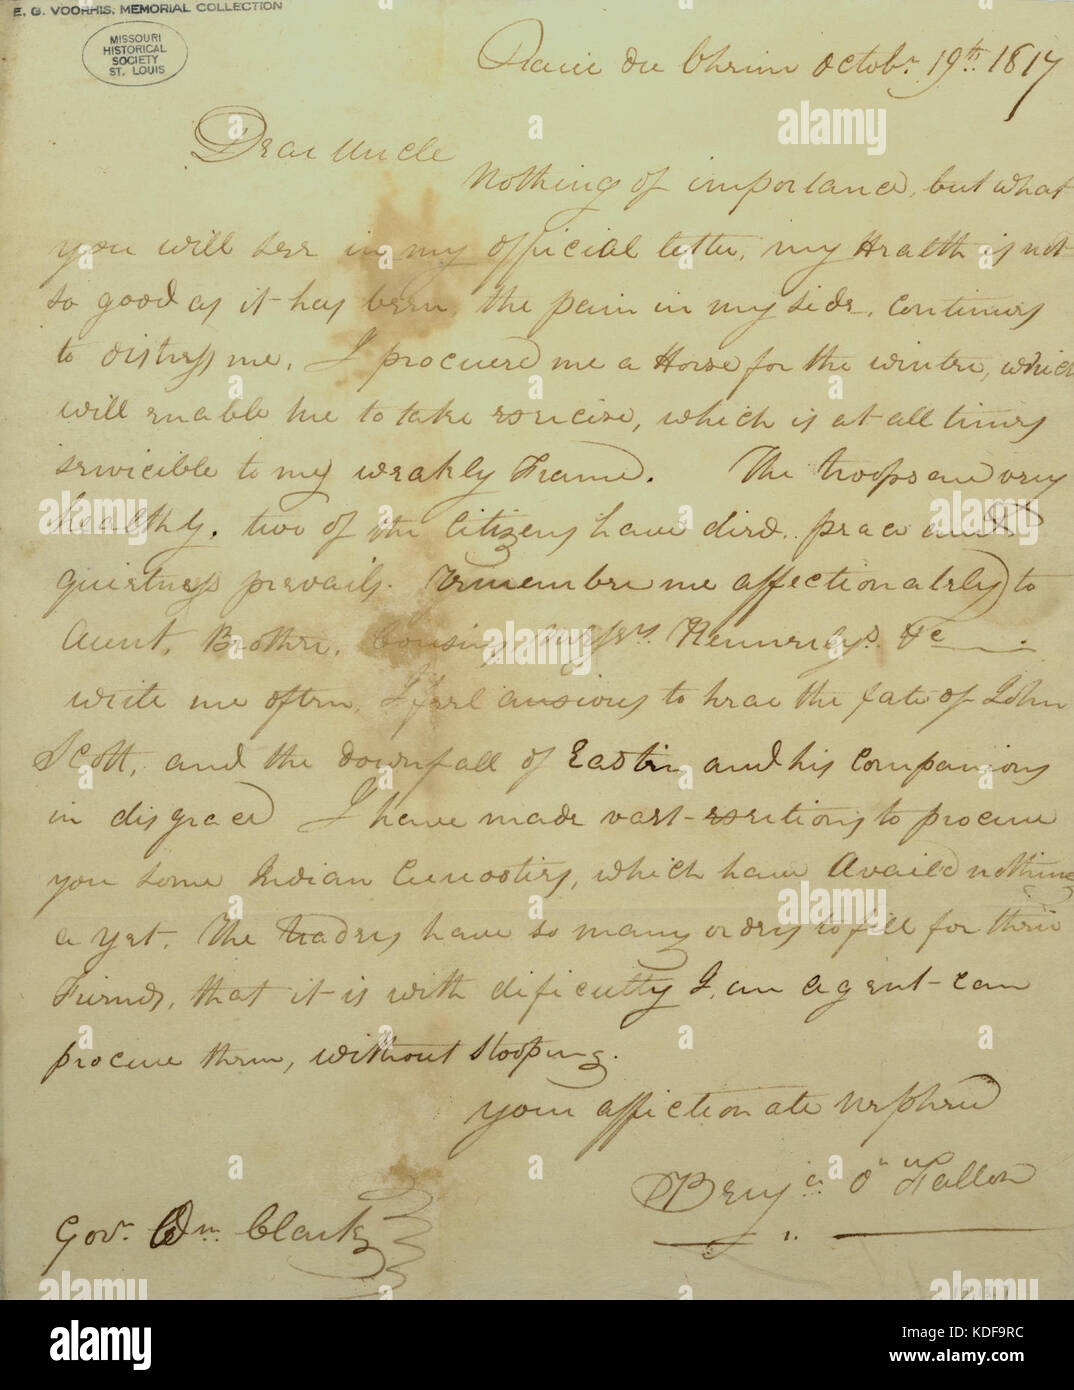 E. G. VOORHIS. MEMORIAL COLLECTION
MISSOURI
HISTORICAL
SOCIETY
ST. LOUIS
Praiu du Chrin Octobr. 19th. 1817
Dear Uncle
Nothing of importance, but what
you will see in my official letter, my Health is not
so good as it has been, the pain in my side, continues
to distress me, I procured me a Horse for the winter, which
will enable me to take exercise, which is at all times
servicible to my weakly Frame. The troops are very
healthy. two of the Citizens have died. peace and
quietness prevails. remember me affectionately to
Aunt, Brother, Cousins, Messrs. Kennerlys. &c
write me often, I feel anxious to hear the fate of John
Scott, and the downfall of Easton and his Companions
in disgrace I have made vast exertions to procure
you some Indian Curiosities, which have Availd nothing
a yet. The traders have so many orders to fill for their
Friends, that it is with dificulty I, an agent can
procure them, without stooping.
your affectionate Nephew
Benja. O'Fallon
Govr. Wm. Clark
alamy
a
Image ID: KDF9RC
www.alamy.com